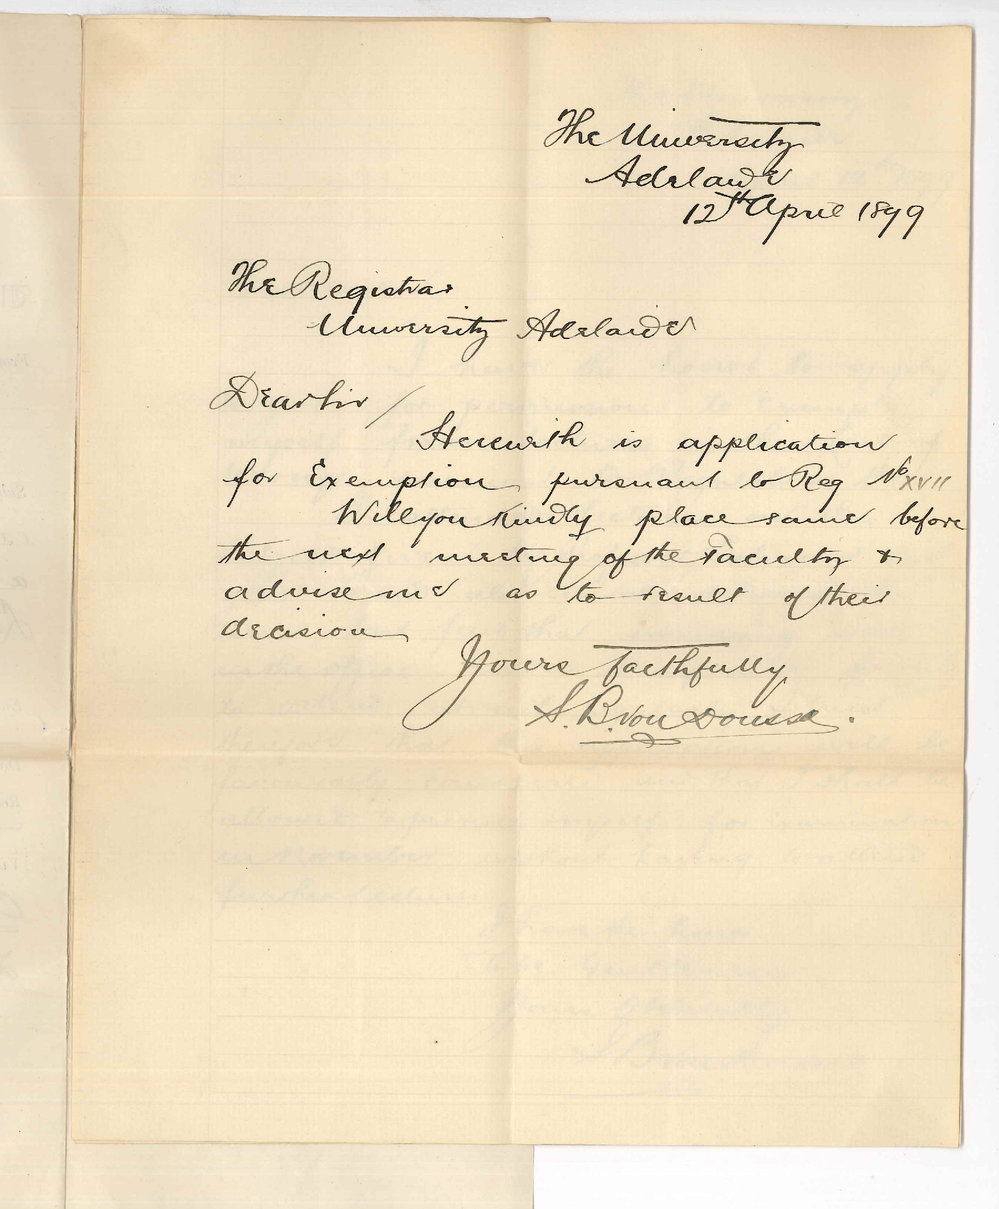 The University
Adelaide
12th April 1899
The Registrar
University Adelaide
Dear Sir /
Herewith is application
for Exemption pursuant to Reg No XVII
Will you kindly place same before
the next meeting of the Faculty &
advise me as to result of their
decision
Yours faithfully
S. B. von Doussa.